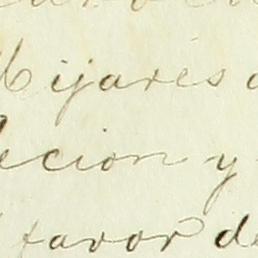 Mijares
ecion y
favor de